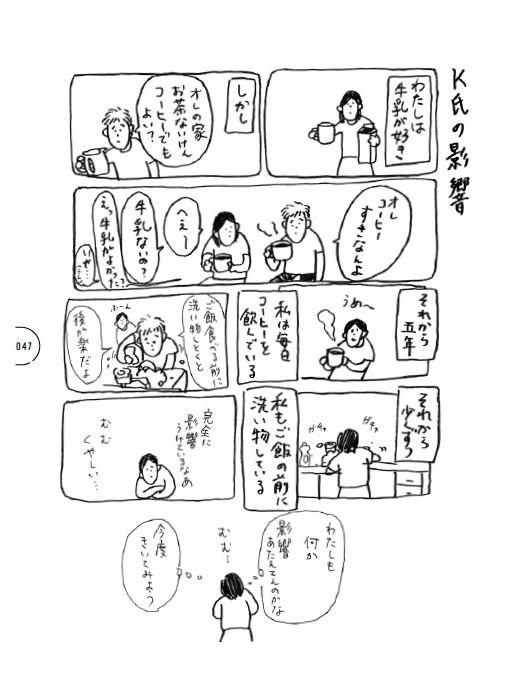 K氏の影響
わたしは
牛乳が好き
しかし
オレの家
お茶ないけん
コーヒーでも
よい?
オレ
コーヒー
すきなんよ
へぇ〜
牛乳ないの?
えっ牛乳がよかった?
いや…
それから
五年
うめ〜
私は毎日
コーヒーを
飲んでいる
ご飯食べる前に
洗い物しとくと
ふーん
後が楽だよ
それから
少しずつ
ガチャ
ガチャ
私もご飯の前に
洗い物している
完全に
影響
うけているなあ
むむ
くやしい…
わたしも
何か
影響
あたえてんのかな
むむ…
今度
きいてみよう
047